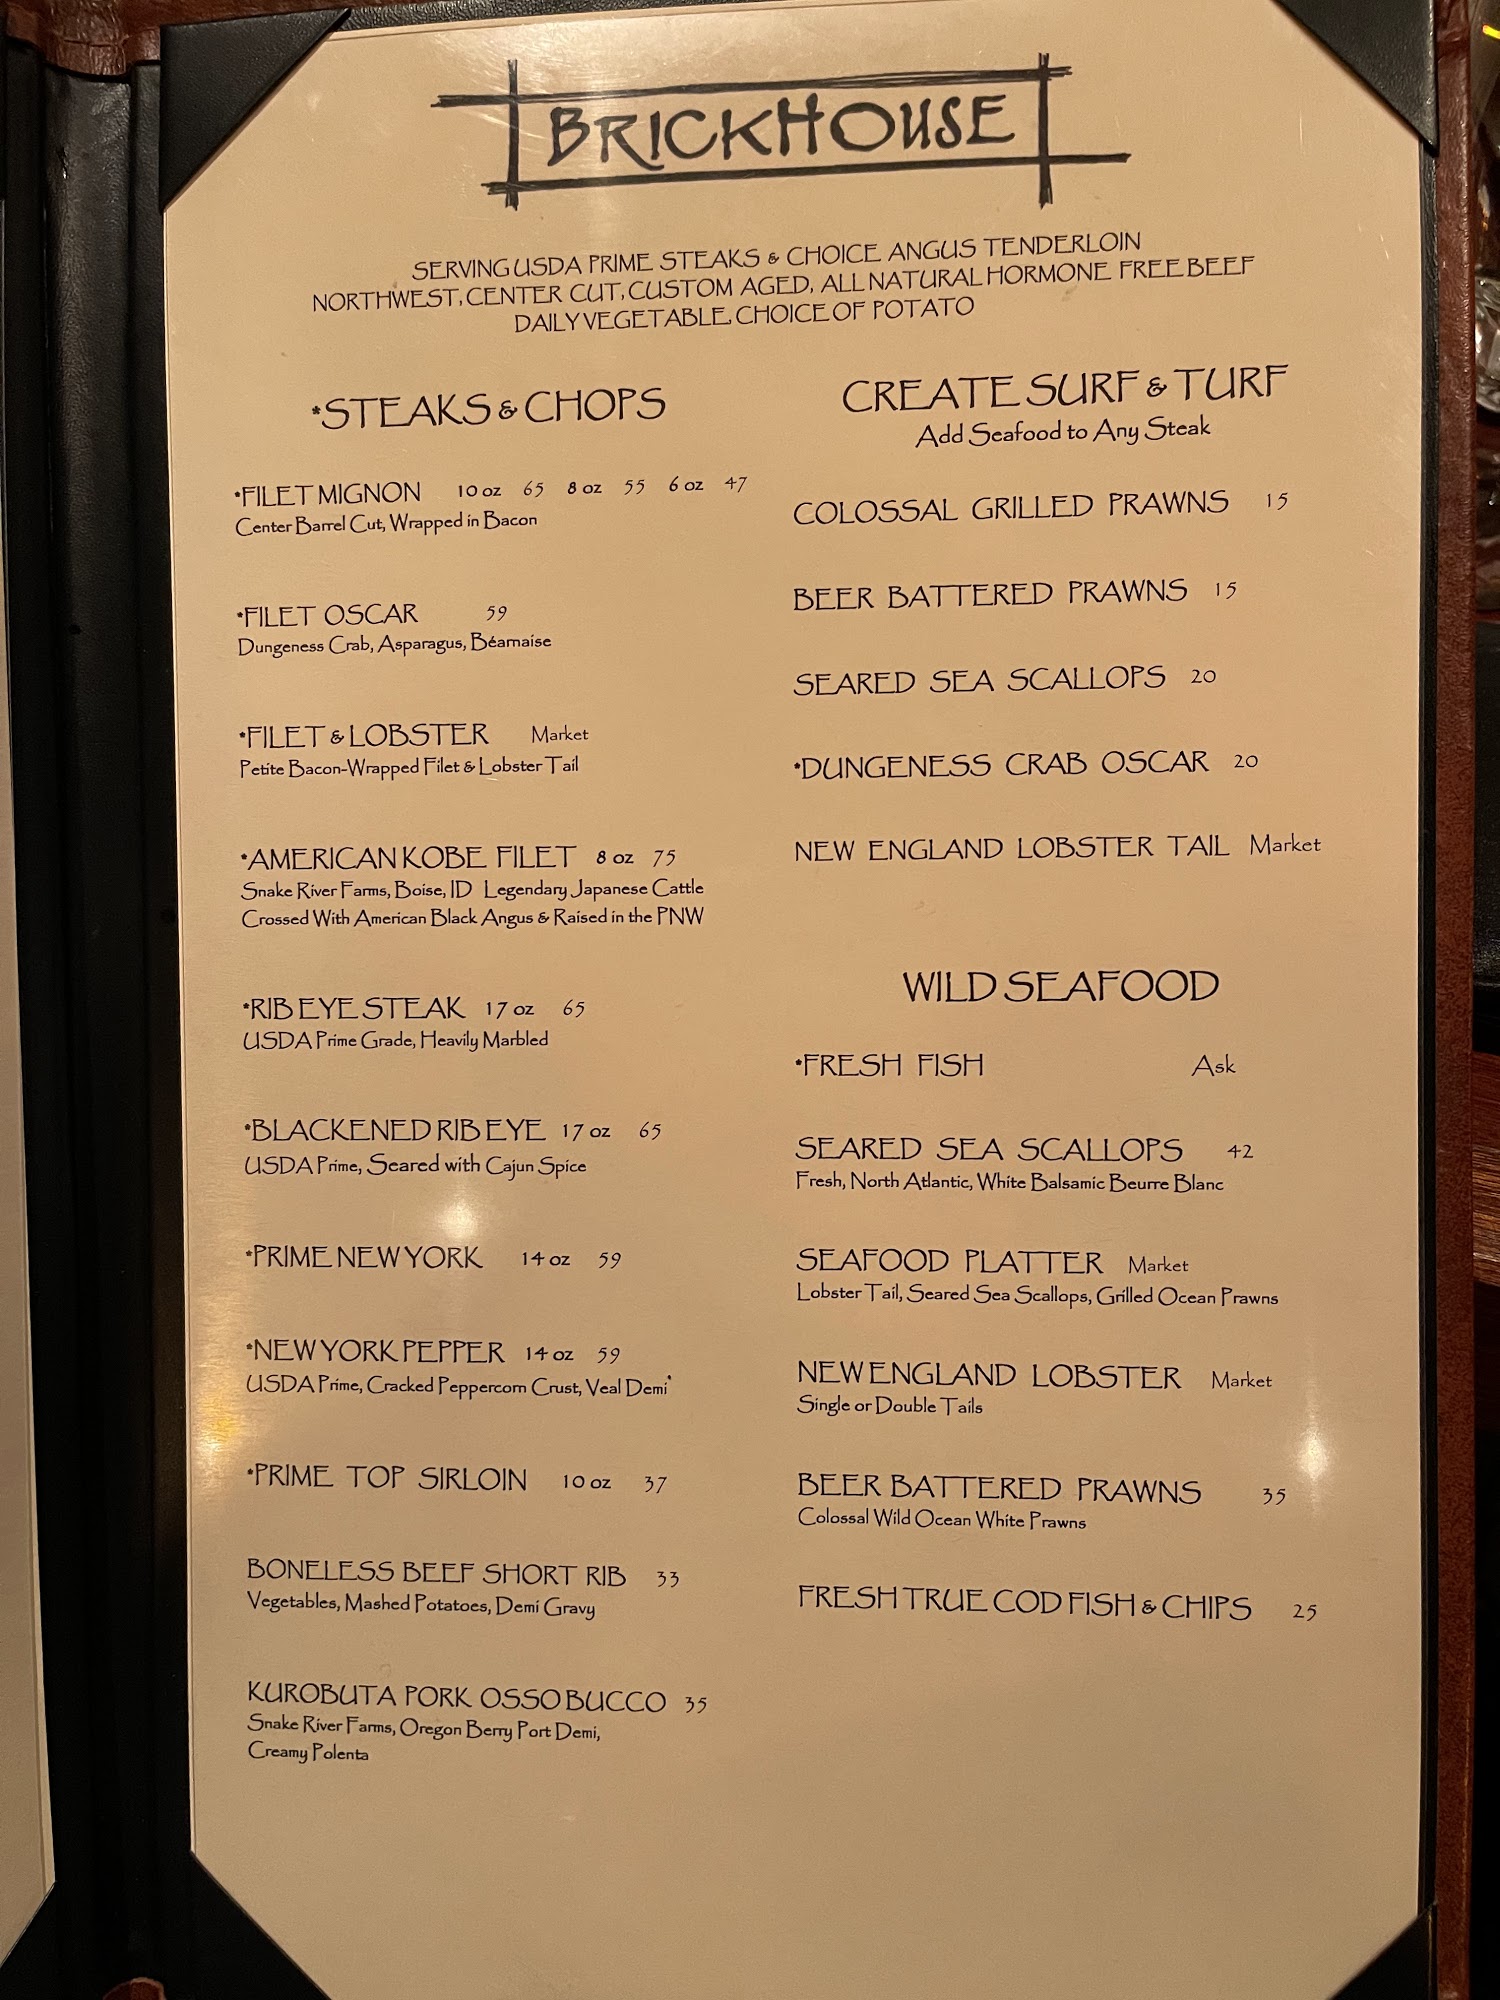 BRICKHOUSE
SERVING USDA PRIME STEAKS & CHOICE ANGUS TENDERLOIN
NORTHWEST, CENTER CUT, CUSTOM AGED, ALL NATURAL HORMONE FREE BEEF
DAILY VEGETABLE, CHOICE OF POTATO
*STEAKS & CHOPS
*FILET MIGNON 10 oz 65 8 oz 55 6 oz 47
Center Barrel Cut, Wrapped in Bacon
*FILET OSCAR 59
Dungeness Crab, Asparagus, Béarnaise
*FILET & LOBSTER Market
Petite Bacon-Wrapped Filet & Lobster Tail
*AMERICAN KOBE FILET 8 oz 75
Snake River Farms, Boise, ID Legendary Japanese Cattle
Crossed With American Black Angus & Raised in the PNW
*RIB EYE STEAK 17 oz 65
USDA Prime Grade, Heavily Marbled
*BLACKENED RIB EYE 17 oz 65
USDA Prime, Seared with Cajun Spice
*PRIME NEW YORK 14 oz 59
*NEW YORK PEPPER 14 oz 59
USDA Prime, Cracked Peppercorn Crust, Veal Demi'
*PRIME TOP SIRLOIN 10 oz 37
BONELESS BEEF SHORT RIB 33
Vegetables, Mashed Potatoes, Demi Gravy
KUROBUTA PORK OSSO BUCCO 35
Snake River Farms, Oregon Berry Port Demi,
Creamy Polenta
CREATE SURF & TURF
Add Seafood to Any Steak
COLOSSAL GRILLED PRAWNS 15
BEER BATTERED PRAWNS 15
SEARED SEA SCALLOPS 20
*DUNGENESS CRAB OSCAR 20
NEW ENGLAND LOBSTER TAIL Market
WILD SEAFOOD
*FRESH FISH Ask
SEARED SEA SCALLOPS 42
Fresh, North Atlantic, White Balsamic Beurre Blanc
SEAFOOD PLATTER Market
Lobster Tail, Seared Sea Scallops, Grilled Ocean Prawns
NEW ENGLAND LOBSTER Market
Single or Double Tails
BEER BATTERED PRAWNS 35
Colossal Wild Ocean White Prawns
FRESH TRUE COD FISH & CHIPS 25